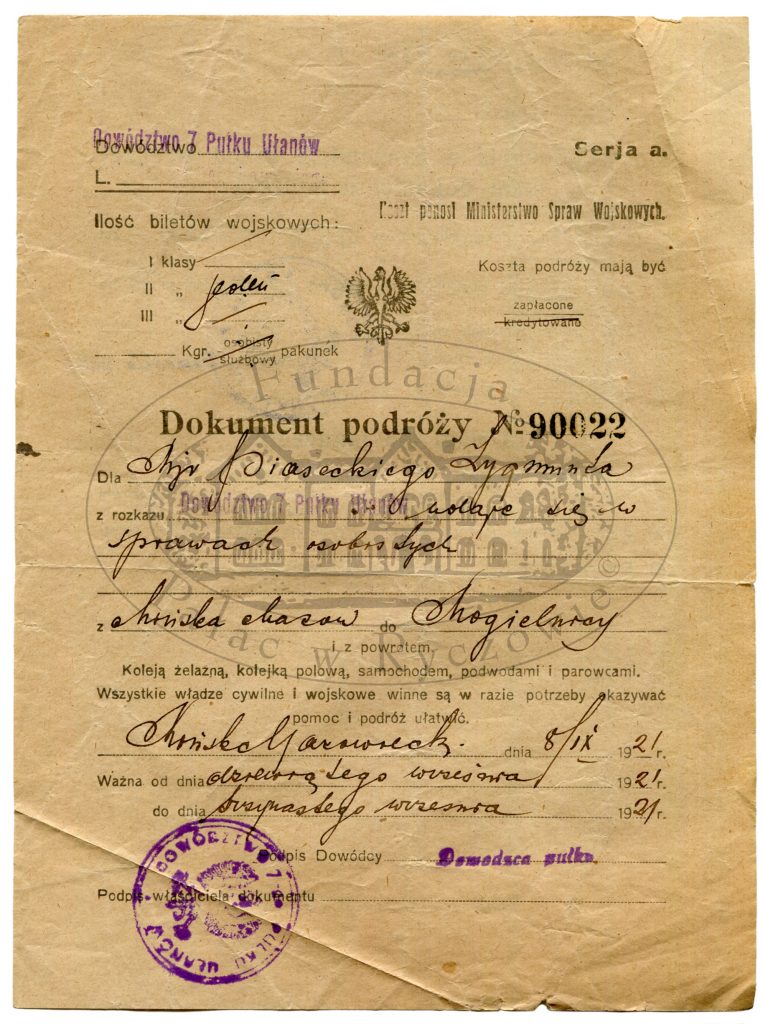 Dowództwo 7 Pułku Ułanów
Dowództwo
L.
Serja a.
Ilość biletów wojskowych:
Koszt ponosi Ministerstwo Spraw Wojskowych.
I klasy
II „ jeden
III „
Koszta podróży mają być
zapłacone
kredytowane
Kgr. osobisty
służbowy pakunek
Fundacja
Pałac w Ryczowie ©
Dokument podróży № 90022
Dla Mjr Piaseckiego Zygmunta
z rozkazu Dowództwo 7 Pułku Ułanów udaje się w
sprawach osobistych
z Mińska Mazow do Mogielnicy
i z powrotem,
Koleją żelazną, kolejką polową, samochodem, podwodami i parowcami.
Wszystkie władze cywilne i wojskowe winne są w razie potrzeby okazywać
pomoc i podróż ułatwić.
Mińsk Mazowiecki. dnia 8/IX 1921 r.
Ważna od dnia dziewiątego września 1921 r.
do dnia trzynastego września 1921 r.
Podpis Dowódcy Dowódca pułku
Podpis właściciela dokumentu
DOWÓDZTWO 7-GO PUŁKU UŁANÓW